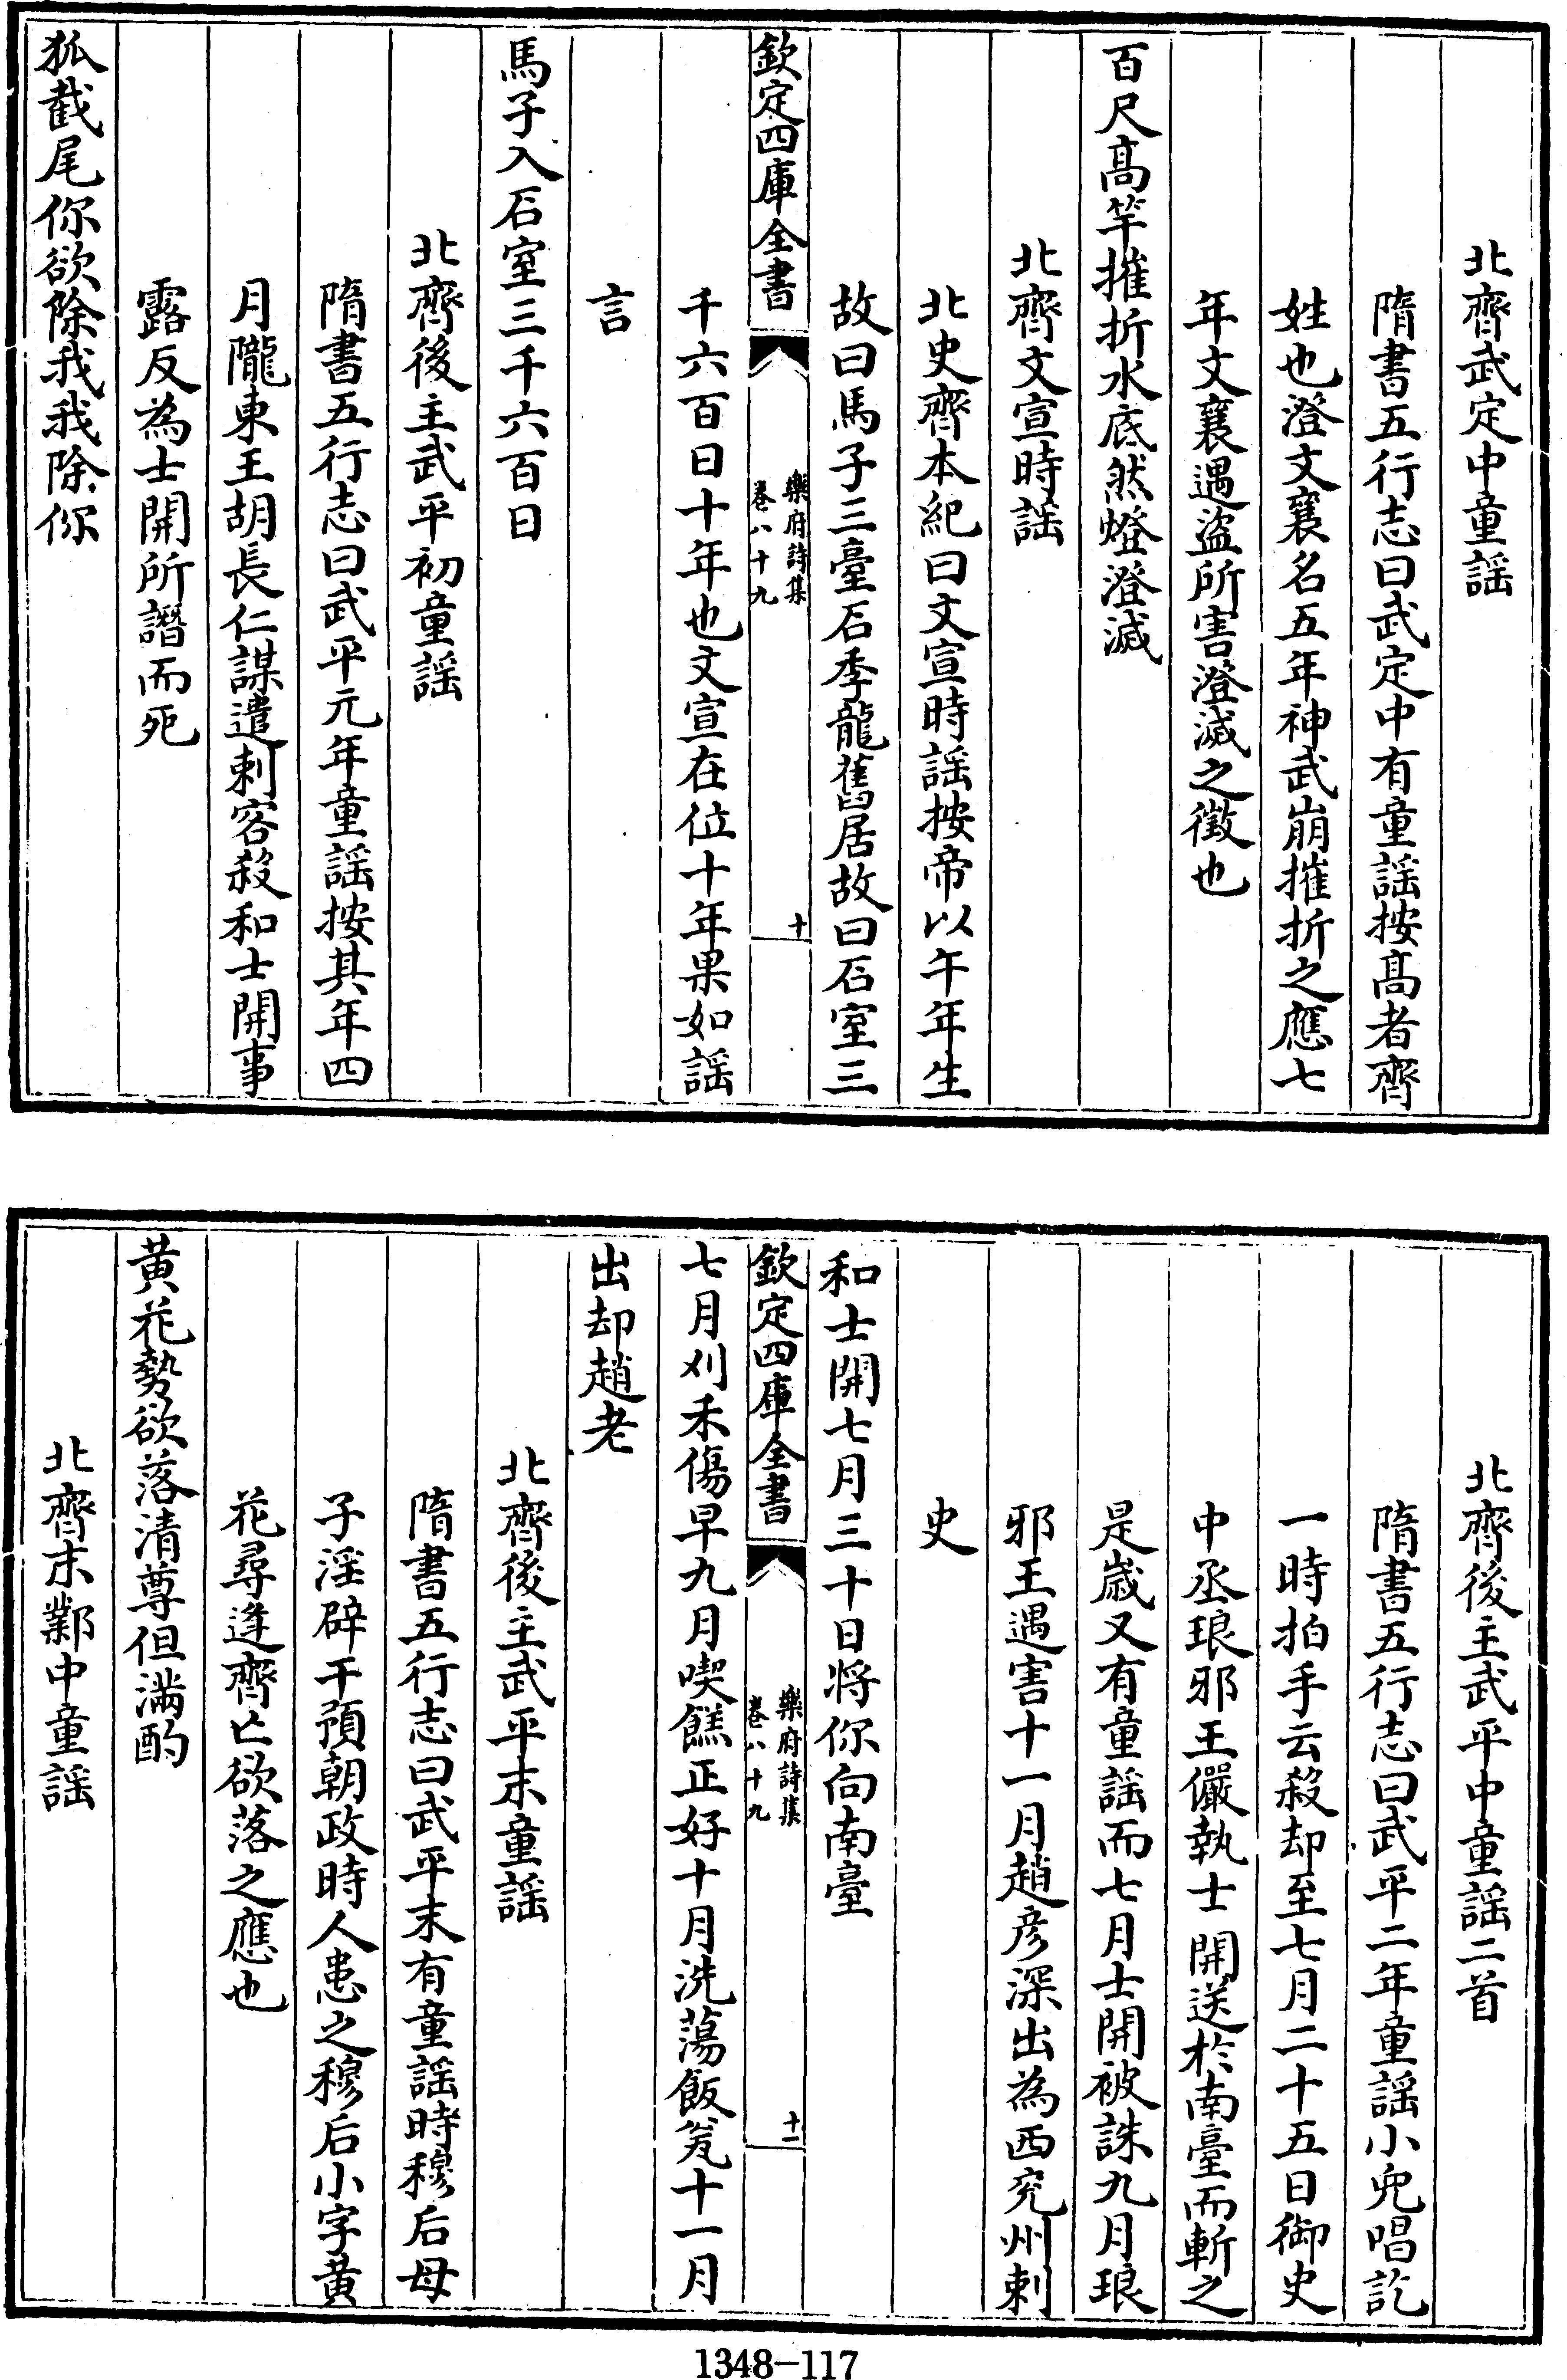 北齊武定中童謡
隋書五行志曰武定中有童謡按髙者齊
姓也澄文襄名五年神武崩摧折之應七
年文襄遇盜所害澄滅之徵也
百尺髙竿摧折水底然燈澄滅
北齊文宣時謡
北史齊本紀曰文宣時謡按帝以午年生
故曰馬子三臺石季龍舊居故曰石室三
欽定四庫全書
樂府詩集
卷八十九
十
千六百日十年也文宣在位十年果如謡
言
馬子入石室三千六百日
北齊後主武平初童謡
隋書五行志曰武平元年童謡按其年四
月隴東王胡長仁謀遣刺客殺和士開事
露反為士開所譖而死
狐截尾你欲除我我除你
北齊後主武平中童謡二首
隋書五行志曰武平二年童謡小兒唱訖
一時拍手云殺却至七月二十五日御史
中丞琅邪王儼執士開送於南臺而斬之
是歲又有童謡而七月士開被誅九月琅
邪王遇害十一月趙彦深出為西兖州刺
史
和士開七月三十日将你向南臺
欽定四庫全書
樂府詩集
卷八十九
十一
七月刈禾傷早九月喫餻正好十月洗蕩飯瓮十一月
出却趙老
北齊後主武平末童謡
隋書五行志曰武平末有童謡時穆后母
子淫辟干預朝政時人患之穆后小字黄
花尋逢齊亡欲落之應也
黄花勢欲落清尊但滿酌
北齊末鄴中童謡
1348-117